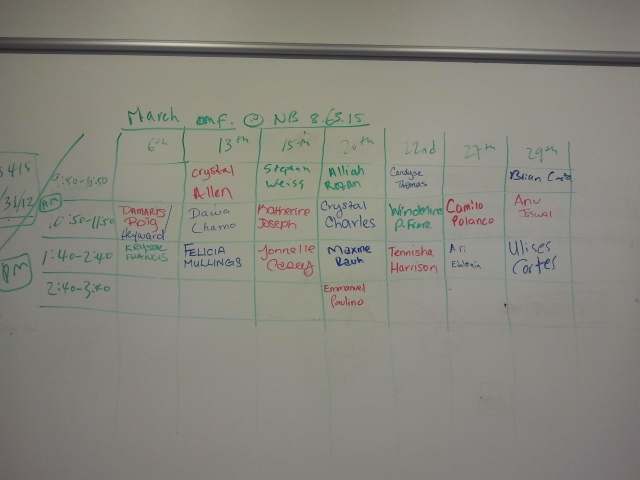 March conf. @ NB 8.63.15
6th 13th 15th 20th 22nd 27th 29th
5415
31/12
9:50-10:50 Crystal Allen Stephan Weiss Alliah Rozan Candyse Thomas Brian
AM
10:50-11:50 Damaris Roig / Heyward Dawa Charno Katherine Joseph Crystal Charles Winderline P. Fiore Camilo Polanco Anu Jiswal
1:40-2:40 Krystal Francis FELICIA MULLINGS Jonnelle Casey Maxine Rauh Tennisha Harrison Ari Ulises Cortes
PM
2:40-3:40 Emmanuel Paulino